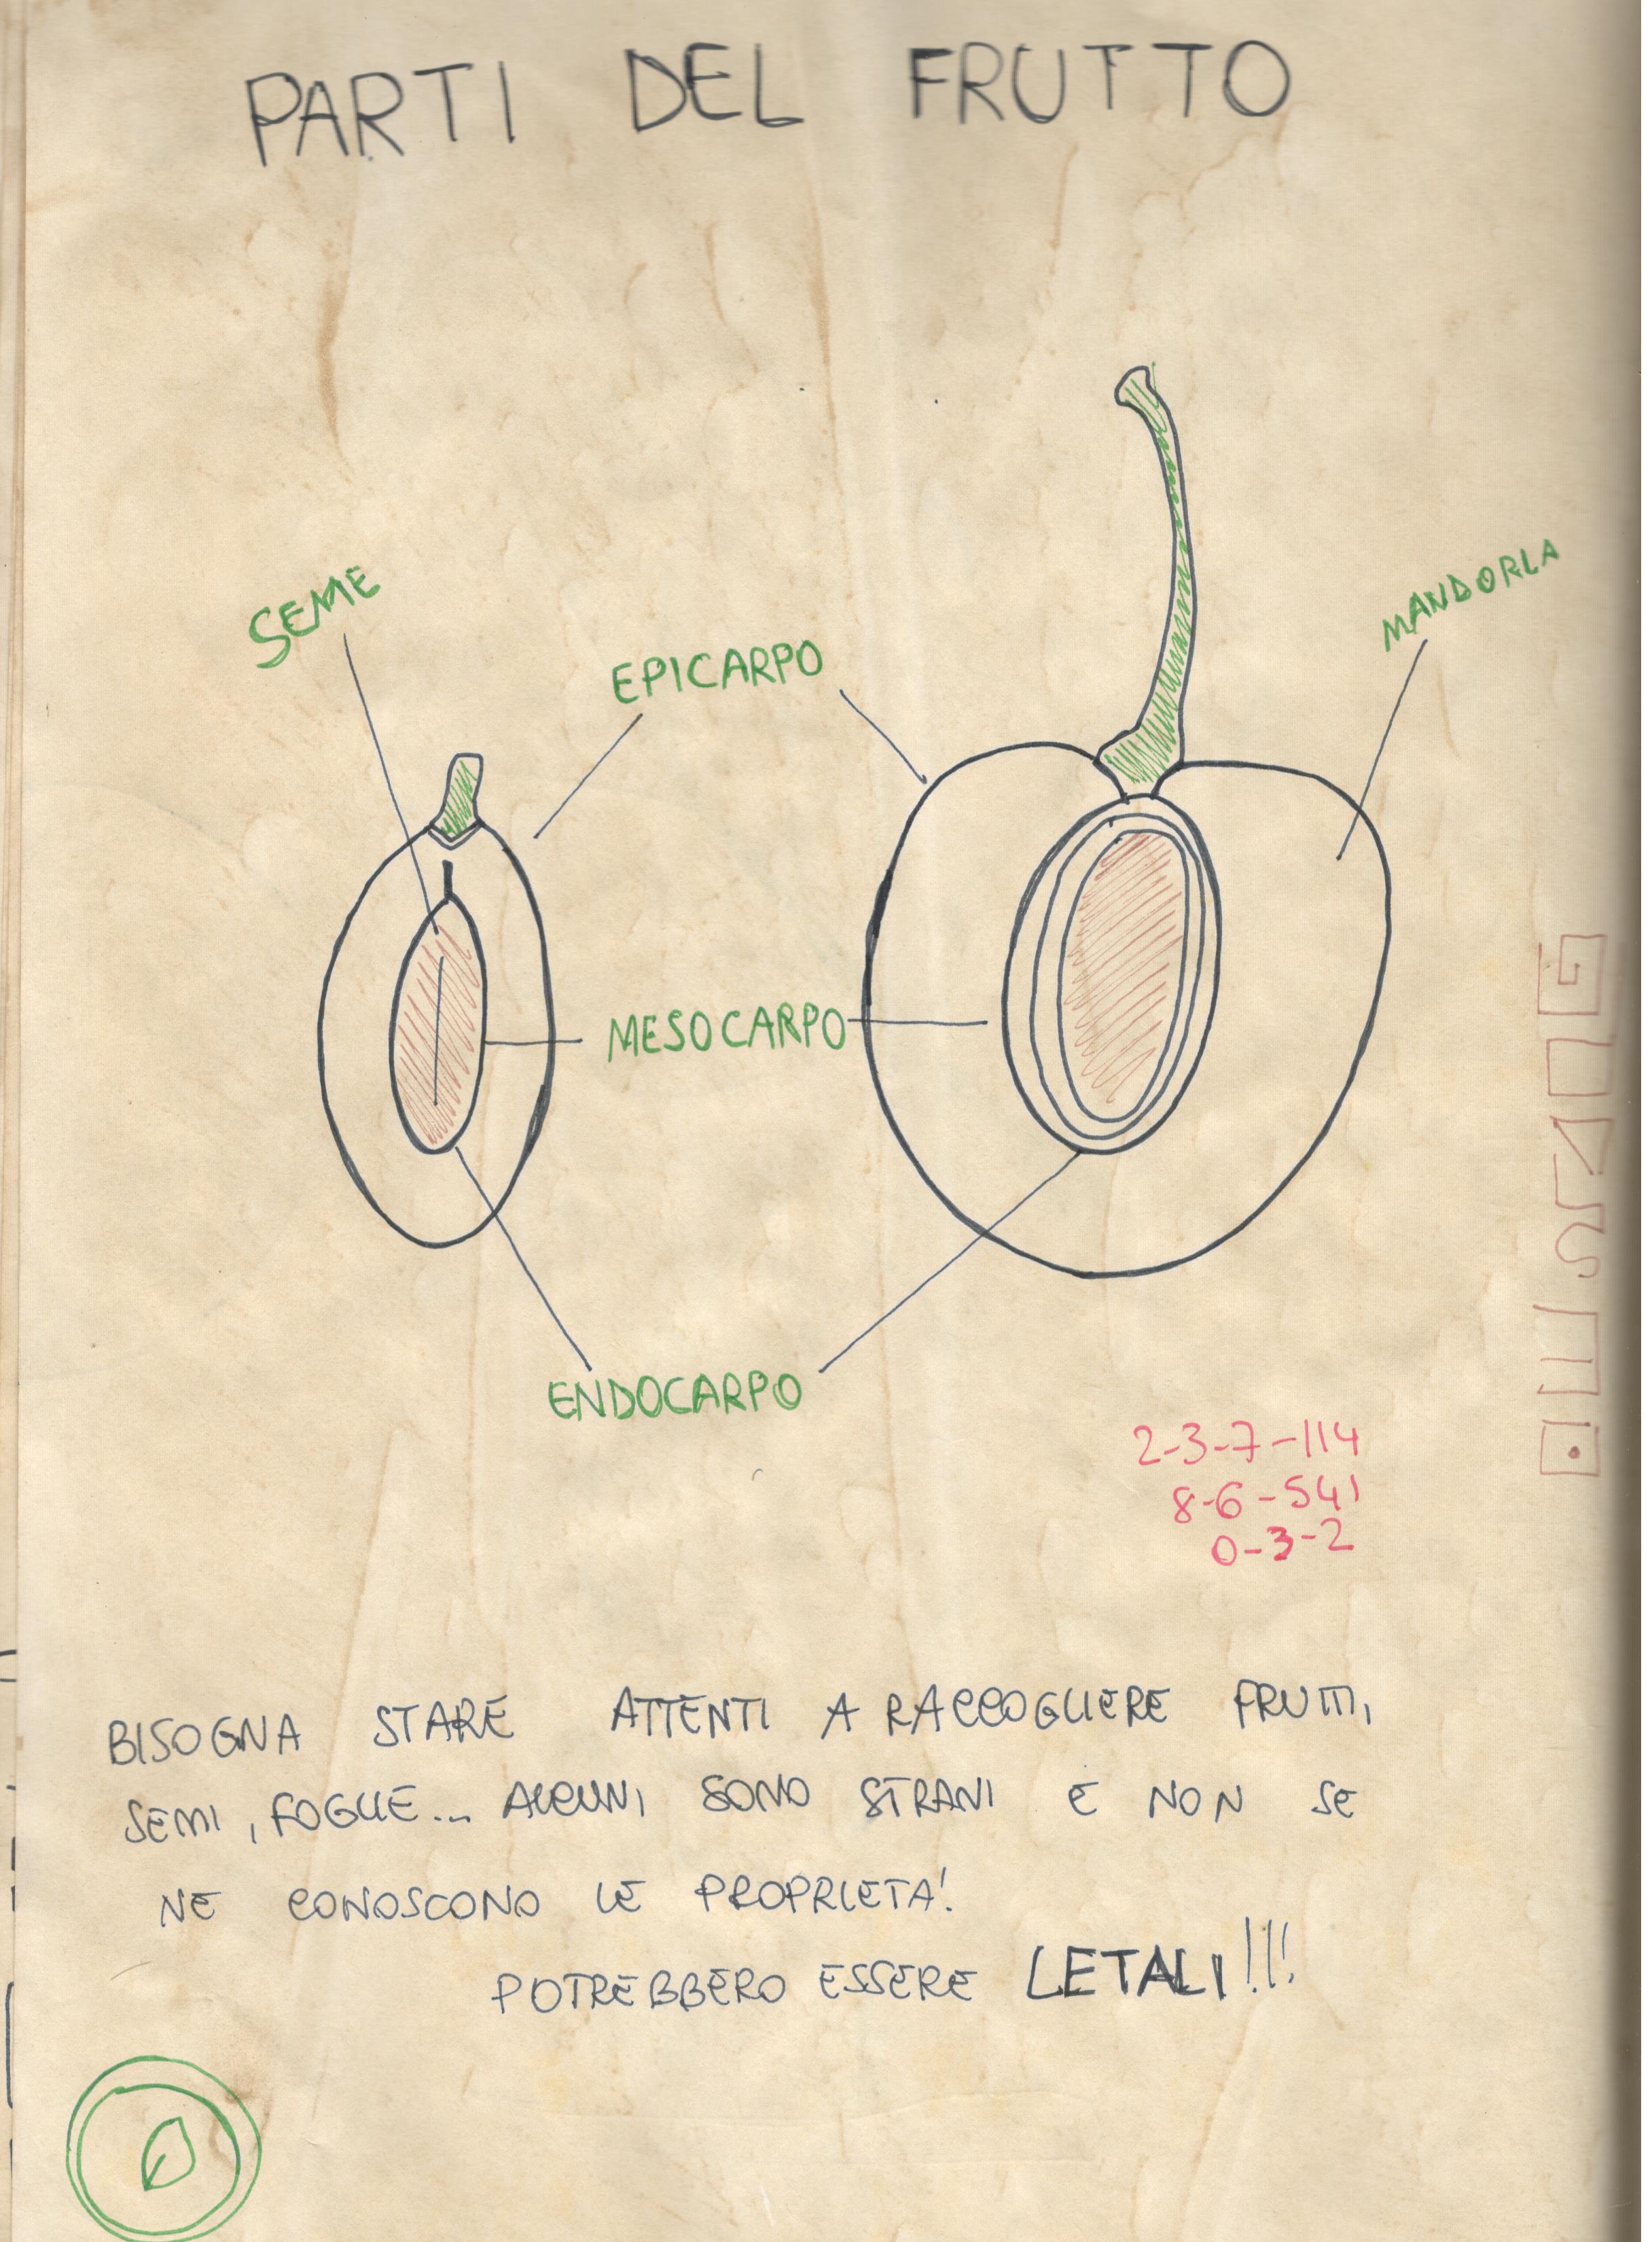 PARTI DEL FRUTTO
SEME
EPICARPO
MANDORLA
MESOCARPO
ENDOCARPO
2-3-7-114
8-6-541
0-3-2
BISOGNA STARE ATTENTI A RACCOGLIERE FRUTTI,
SEMI, FOGLIE... ALCUNI SONO STRANI E NON SE
NE CONOSCONO LE PROPRIETA'.
POTREBBERO ESSERE LETALI!!!